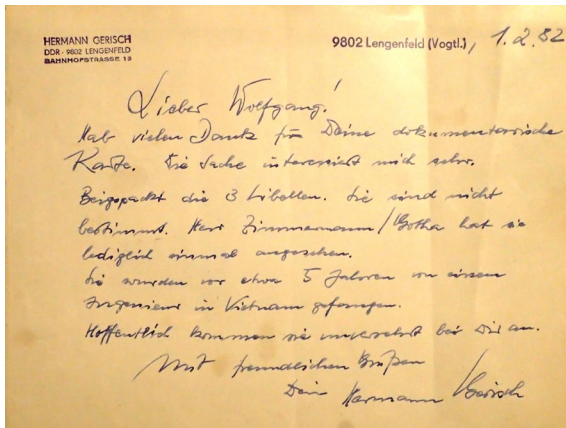 HERMANN GERISCH
DDR - 9802 LENGENFELD
BAHNHOFSTRASSE 13
9802 Lengenfeld (Vogtl.), 1.2.82
Lieber Wolfgang!
Hab vielen Dank für Deine dokumentarische
Karte. Die Sache interessiert mich sehr.
Beigepackt die 3 Libellen. Sie sind nicht
bestimmt. Herr Zimmermann/Gotha hat sie
lediglich einmal angesehen.
Sie wurden vor etwa 5 Jahren von einem
Ingenieur in Vietnam gefangen.
Hoffentlich kommen sie unversehrt bei Dir an.
Mit freundlichen Grüßen
Dein Hermann Gerisch